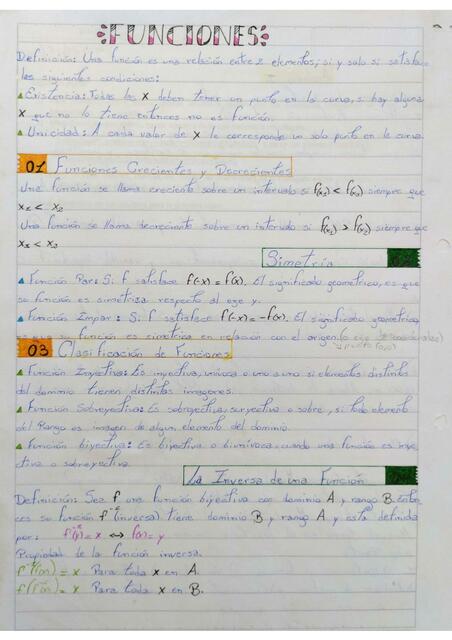 FUNCIONES
Definición: Una función es una relación entre 2 elementos, si y solo si satisface
las siguientes condiciones:
Existencia: Todas las x deben tener un punto en la curva, si hay alguna
x que no lo tiene entonces no es función.
Unicidad: A cada valor de x le corresponde un solo punto en la curva.
01 Funciones Crecientes y Decrecientes
Una función se llama creciente sobre un intervalo si f(x₁) < f(x₂) siempre que
x₁ < x₂
Una función se llama decreciente sobre un intervalo si f(x₁) > f(x₂) siempre que
x₁ < x₂
Simetría
Función Par: Si f satisface f(-x) = f(x). El significado geometrico, es que
su función es simetrica respecto al eje y.
Función Impar: Si f satisface f(-x) = -f(x). El significado geometrico
es que su función es simetrica en relación con el origen
03 Clasificación de Funciones
Función Inyectiva: Es inyectiva, univoca o uno a uno si elementos distintos
del dominio tienen distintas imagenes.
Función Sobreyectiva: Es sobreyectiva, suryectiva o sobre, si todo elemento
del Rango es imagen de algun elemento del dominio.
Función biyectiva: Es biyectiva o biunivoca, cuando una función es inye-
ctiva o sobreyectiva.
La Inversa de una Función
Definición: Sea f una función biyectiva con dominio A y rango B. Enton
ces su función f⁻¹ (inversa) tiene dominio B y rango A y está definida
por: f⁻¹(y) = x ↔ f(x) = y
Propiedad de la función inversa.
f⁻¹(f(x)) = x Para toda x en A.
f(f⁻¹(x)) = x Para toda x en B.